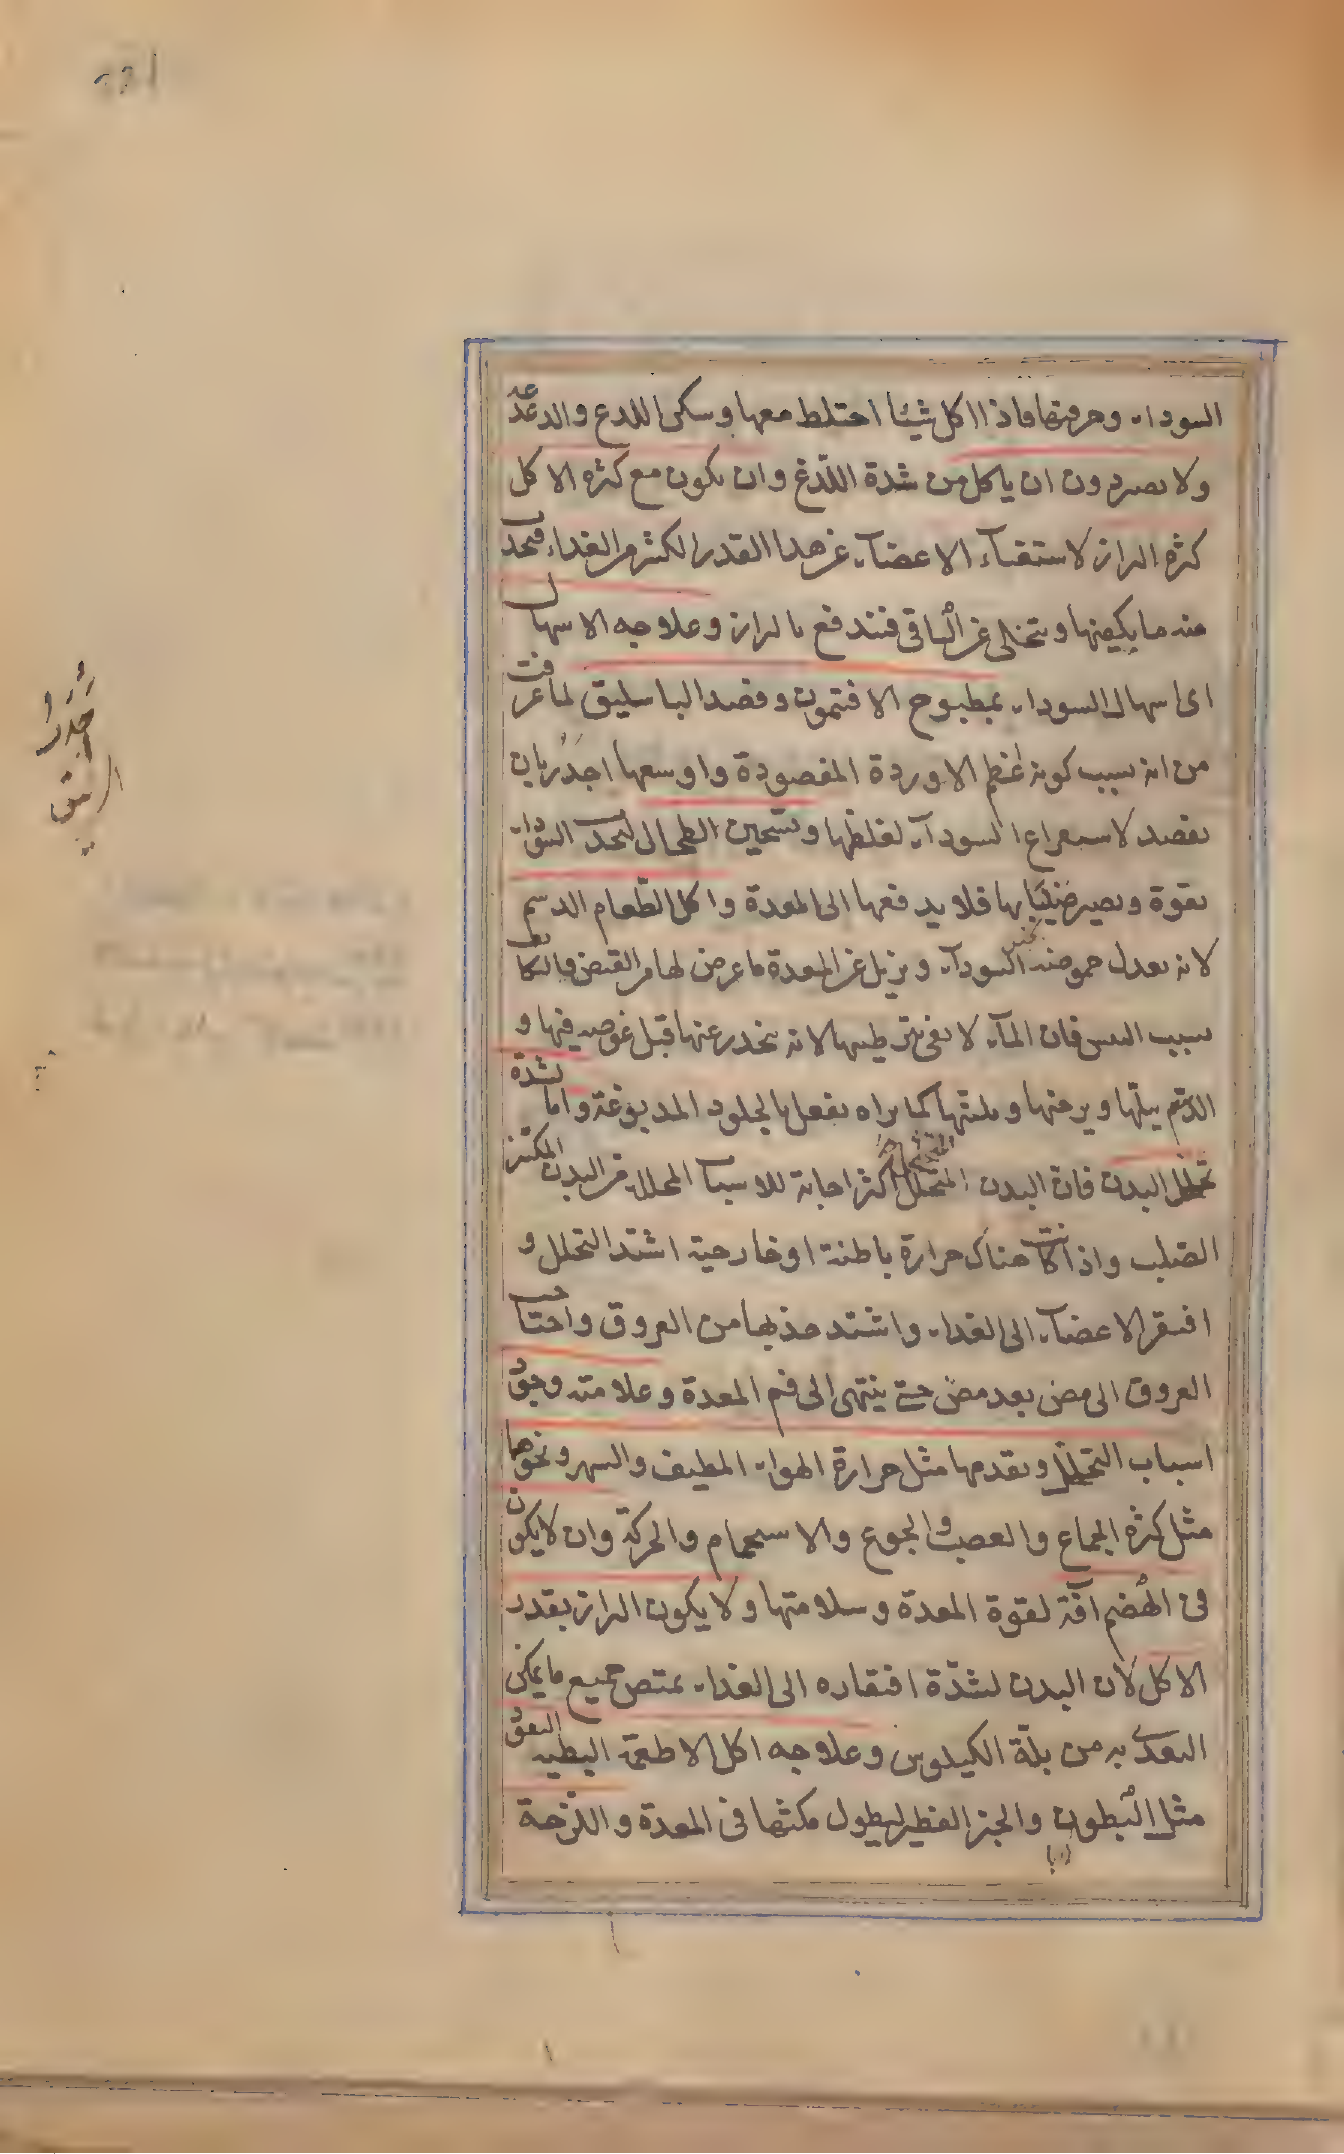 السوداء وحرقتها فاذا اكل شيئا اختلط معها وسكن اللدع والدغدغه
ولا يصبرون ان ياكل من شدة اللّدغ وان يكون مع كثره الاكل
كثره البراز لاستغناء الاعضاء عن هذا القدر الكثير من الغداء فتجذب
منه ما يكفيها ويتخلى عن الباقى فيندفع بالبراز وعلاجه الاسهال
اى اسهال السوداء بمطبوخ الافتمون وفصد الباسليق لما عرفت
من انه بسبب كونه اعظم الاوردة المفصودة واوسعها اجدر بان
يفصد لاستفراغ السوداء لغلظها وتسخين الطحال ليجذب السوداء
بقوة ويصير ضنينا بها فلا يدفعها الى المعدة واكل الطّعام الدسم
لانه يعدل حموضه السوداء ويزيل عن المعدة ما عرض لها من القبض والتكاثف
بسبب اليبس فان الماء لا يفى بترطيبها لانه ينحدر عنها قبل غوصه فيها و
الدسم يبلّها ويرخيها ويلينها كما نراه يفعل بالجلود المدبوغة واما لشدة
تخلخل البدن فان البدن المتخلخل اكثر اجابة للاسباب المحلله من البدن المكتنز
الصّلب واذا كانت هناك حرارة باطنة او خارجية اشتد التحلل و
افتقر الاعضاء الى الغداء واشتد جذبها من العروق واحتاجت
العروق الى مص بعد مص حتى ينتهى الى فم المعدة وعلامته وجود
اسباب التخلخل وتقدمها مثل حرارة الهواء المطيف والسهر ونحوها
مثل كثره الجماع والغضب والجوع والاستحمام والحركة وان لا يكون
فى الهضم آفة لقوة المعدة وسلامتها ولا يكون البراز بقدر
الاكل لان البدن لشدّة افتقاره الى الغداء يمتص جميع ما يمكن
التغدى به من بلّة الكيلوس وعلاجه اكل الاطعمة البطيه النفوذ
مثل البطون والخبز الفطير ليطول مكثها فى المعدة واللزجة